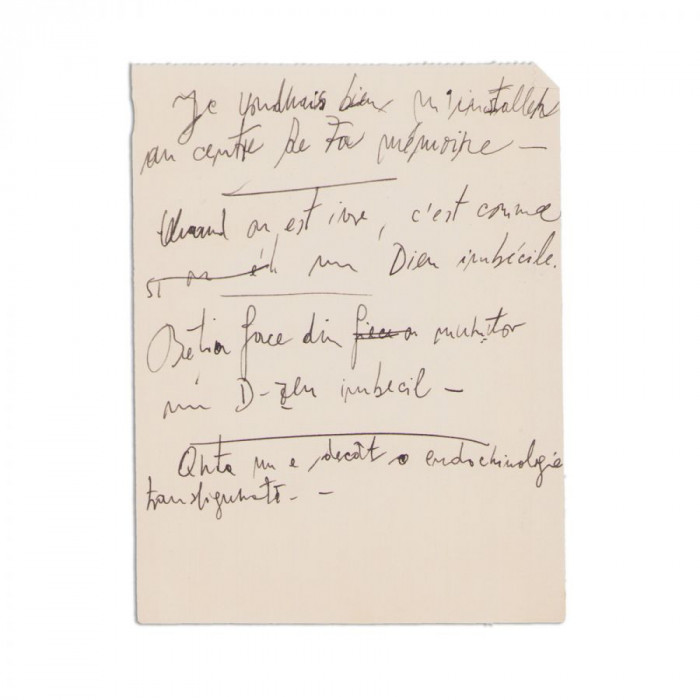 Je voudrais bien m'installer
au centre de Ta mémoire —
Quand on est ivre, c'est comme
si on ét. un Dieu imbécile.
Beția face din muritor
un D-zeu imbecil —
Arta nu e decât o endocrinologie
transfigurată. —